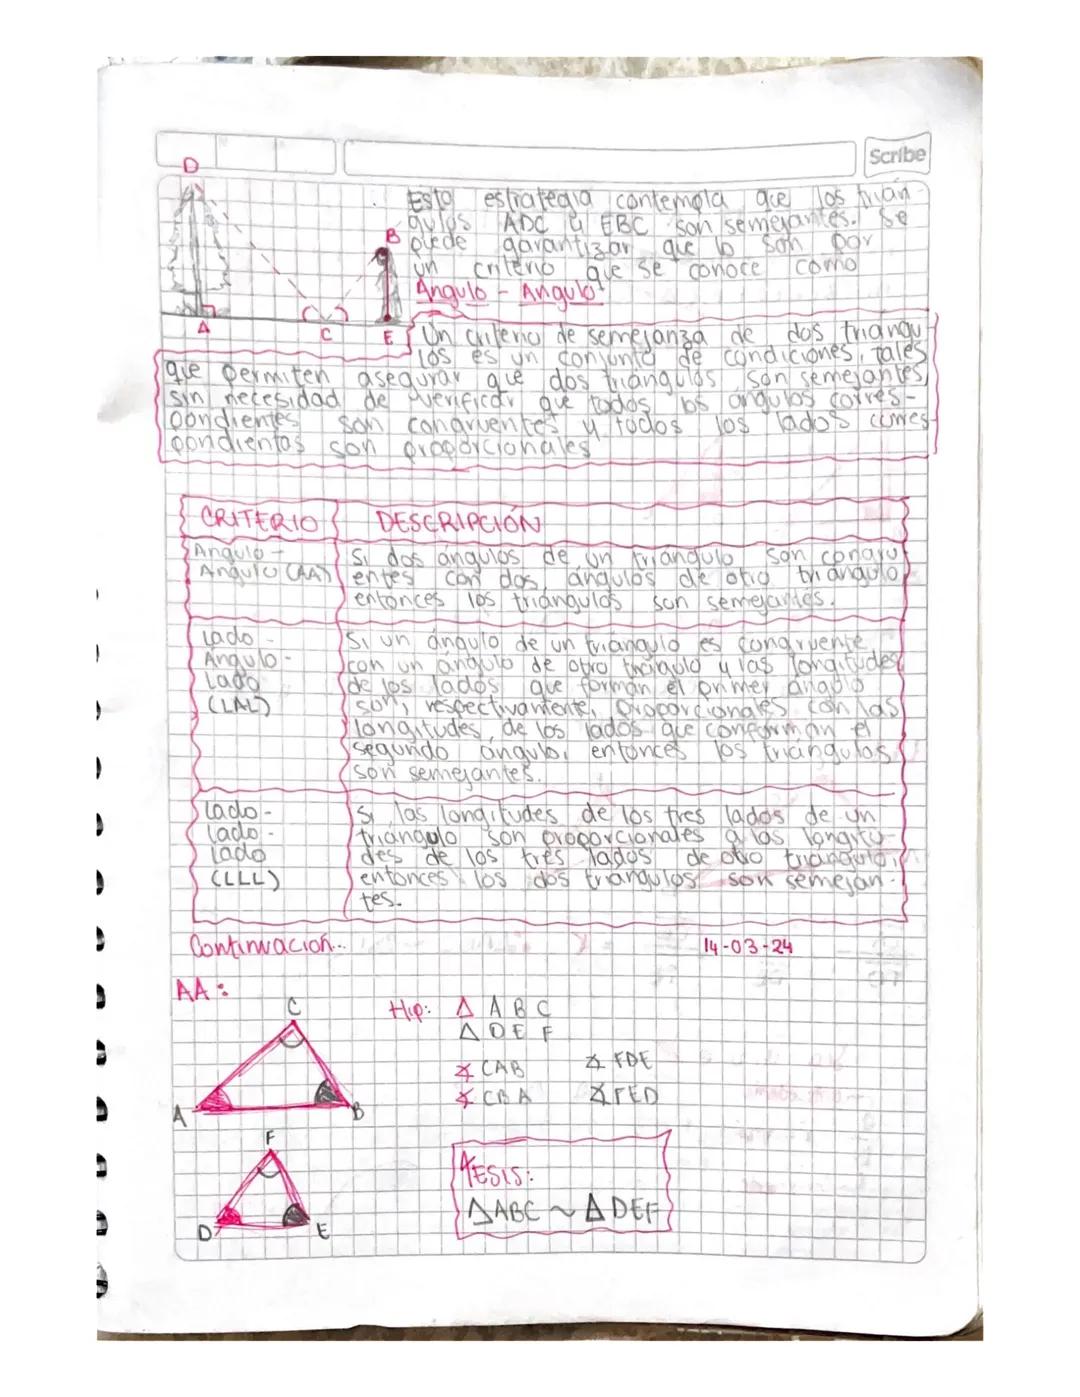 Scribe
D
B
A
C
E
Esta estrategia contempla que los trian-
gulos ADC y EBC son semejantes. Se
puede garantizar que lo son por
un criterio que se conoce como
Angulo - Angulo
Un criterio de semejanza de dos triangu
los es un conjunto de condiciones, tales
que permiten asegurar que dos triángulos son semejantes,
sin necesidad de verificar que todos los ángulos corres-
pondientes son congruentes y todos los lados corres-
pondientes son proporcionales
CRITERIO DESCRIPCIÓN
Angulo -
Angulo (AA)
Si dos ángulos de un triangulo son congru
entes con dos ángulos de otro triangulo,
entonces los triángulos son semejantes.
Lado -
Ángulo -
Lado
(LAL)
Si un ángulo de un triángulo es congruente
con un ángulo de otro triángulo y las longitudes
de los lados que forman el primer ángulo
son, respectivamente, proporcionales con las
longitudes de los lados que conforman el
segundo ángulo, entonces los triángulos
son semejantes.
Lado -
Lado -
Lado
(LLL)
Si las longitudes de los tres lados de un
triangulo son proporcionales a las longitu-
des de los tres lados de otro triangulo,
entonces los dos triangulos son semejan-
tes.
Continuación... 14-03-24
AA:
C
A
B
F
D
E
Hip: △ A B C
△ D E F
∡ CAB ∡ FDE
∡ CBA ∡ FED
TESIS:
△ABC ~ △DEF